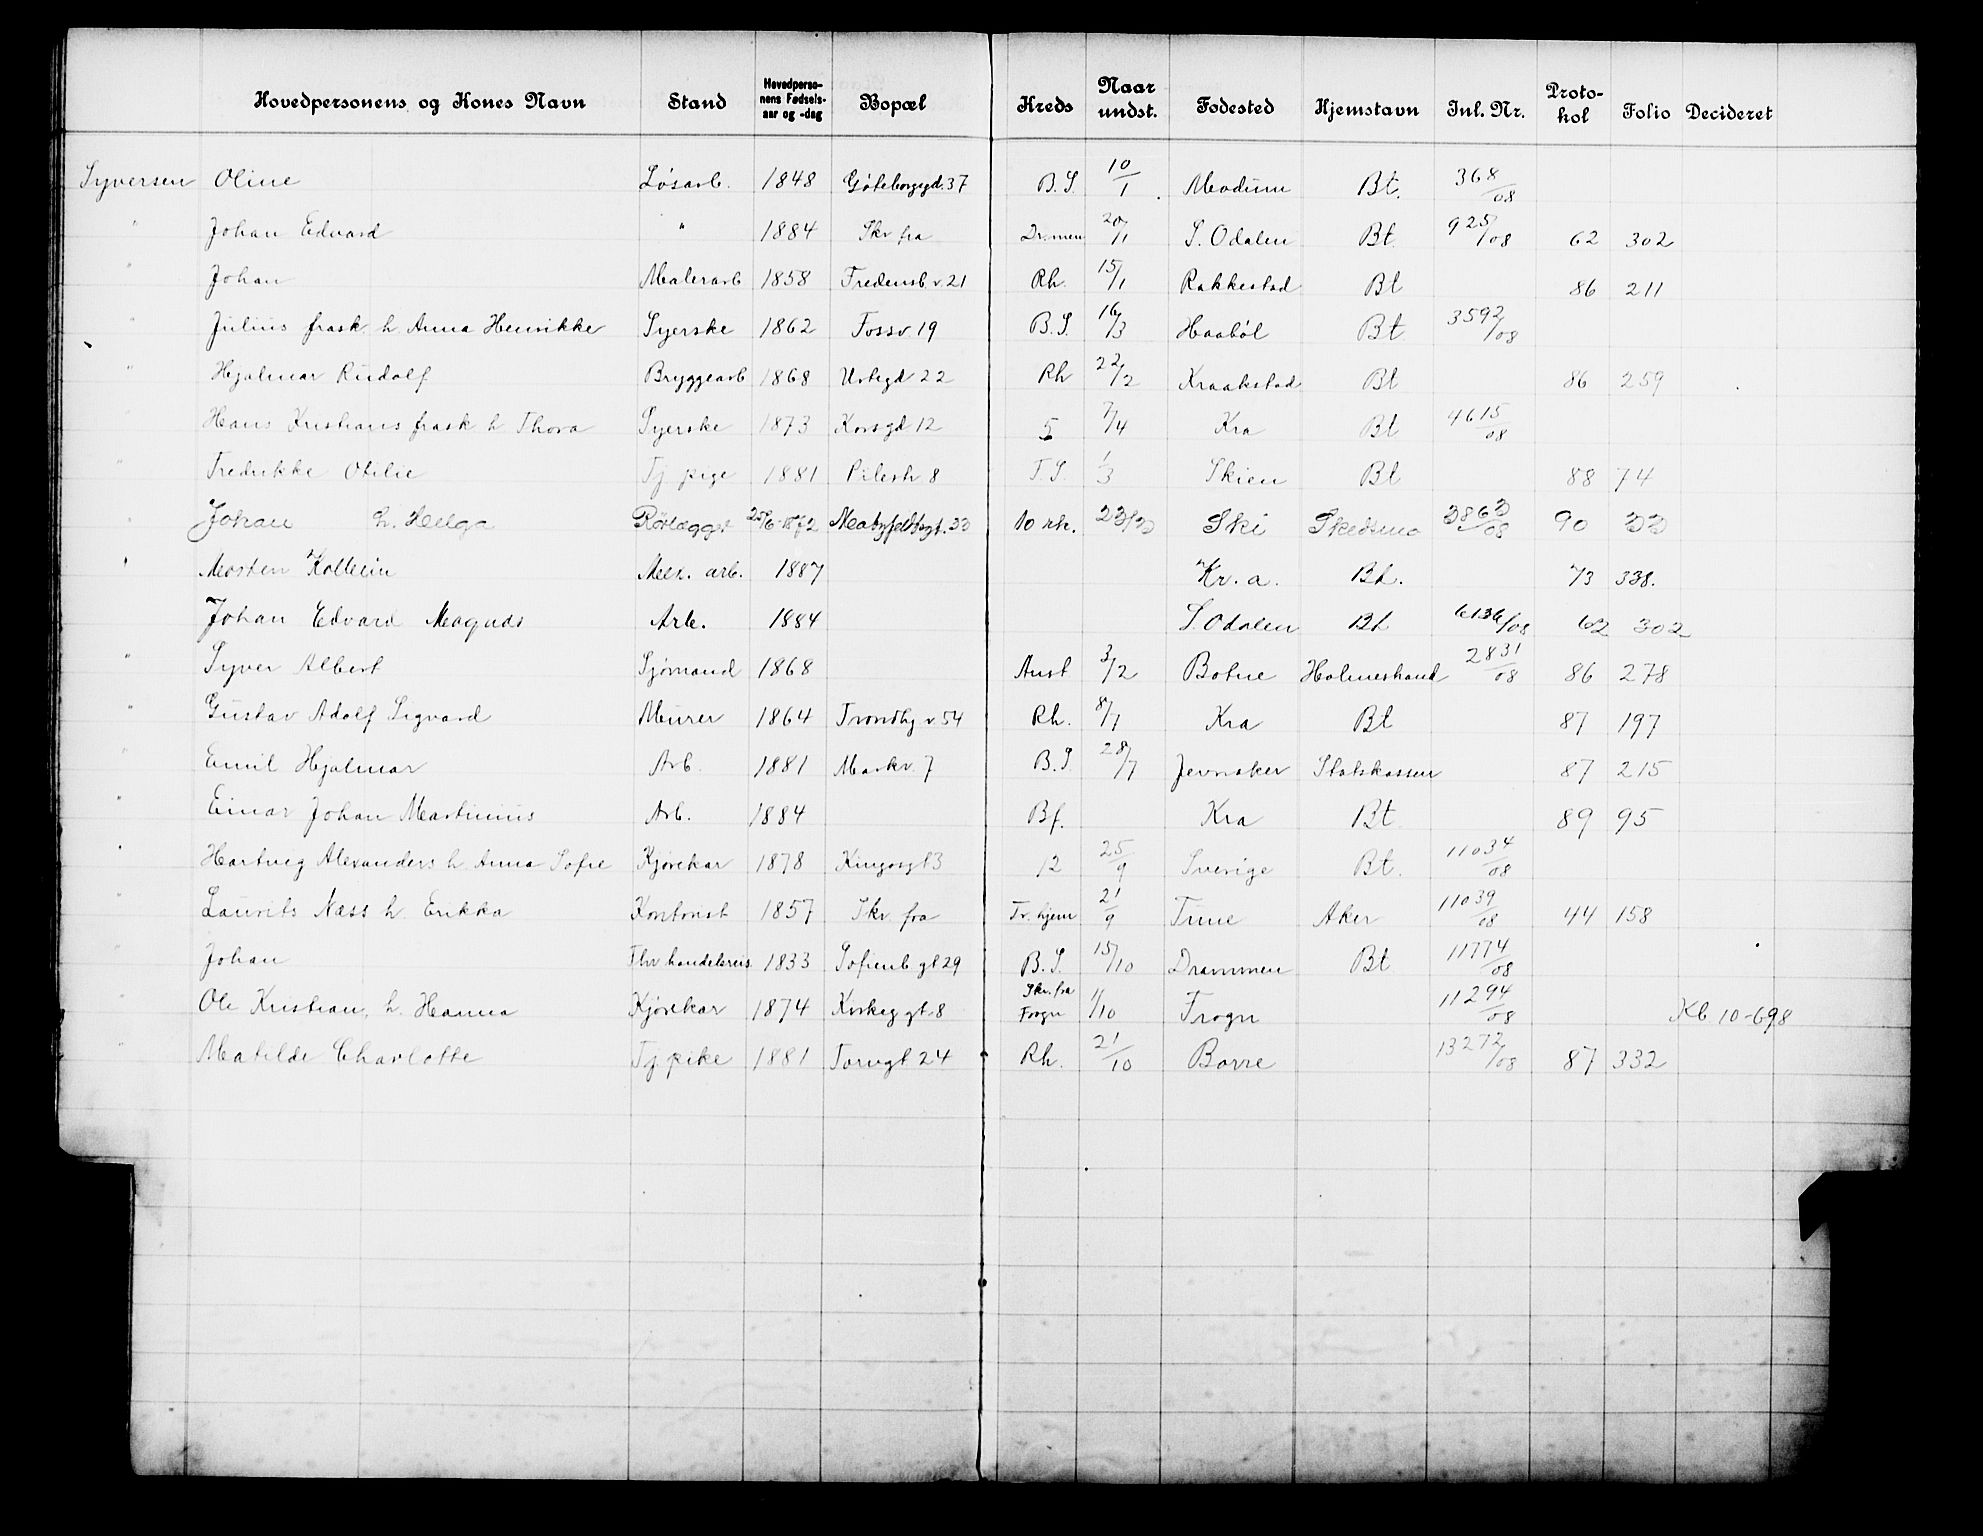 Hovedpersonens og Kones Navn Stand Hovedperso-nens Fødsels-aar og -dag Bopæl Kreds Naar undst. Fødested Hjemstavn Inl. Nr. Proto-kol Folio Decideret
Syversen Oline Løsarb. 1848 Göteborggd. 37 B.S. 10/1 Modum Bt. 368/08
" Johan Edvard " 1884 Skr fra Dr.men 20/11 S. Odalen Bt. 925/08 62 302
" Johan Malerarb 1858 Fredensb v. 21 Rh. 15/1 Rakkestad Bt 86 211
" Julius frask h Anna Henrikke Syerske 1862 Fossv. 19 B.S. 16/3 Haabøl Bt 3592/08
" Hjalmar Rudolf Bryggearb 1868 Urtegd 22 Rh 22/2 Kraakstad Bt 86 259
" Hans Kristians frask h Thora Syerske 1873 Korsgd 12 5 7/4 Kra Bt 4615/08
" Fredrikke Otilie Tj pige 1881 Pilestr 8 T.S. 1/3 Skien Bt 88 74
" Johan h. Helga Rørlægger 25/6-1872 10 rk. 23/3 Ski Skedsmo 3863/08 90 33
" Morten Kollein Mek. arb. 1887 Kr.a. Bt. 73 338.
Johan Edvard Magnus Arb. 1884 S. Odalen Bt 6136/08 62 302
" Syver Albert Sjømand 1868 Aust 3/2 Botne Holmestrand 2831/08 86 278
" Gustav Adolf Sigvard Murer 1864 Trondhj v. 54 Rh. 8/7 Kra Bt 87 197
" Emil Hjalmar Arb. 1881 Markv. 7 B.S. 28/7 Jevnaker Statskassen 87 215
" Einar Johan Martinius Arb. 1884 Bf. Kra Bt 89 95
" Hartvig Alexanders h. Anna Sofie Kjørekar 1878 Kingosgt 3 12 25/9 Sverige Bt. 11034/08
" Laurits Næss h. Erikka Kontorist 1857 Skr. fra Tr. hjem 21/9 Tune Aker 11039/08 44 158
" Johan Fhv handelsreis. 1833 Sofienb gt 29 B.S. 15/10 Drammen Bt 11774/08
" Ole Kristian, h. Hanna Kjørekar 1874 Kirkeg gt. 8 Skr. fra Frogn 1/10 Frogn 11294/08 Kb 10-698
" Matilde Charlotte Tj. pike 1881 Torvgt 24 Rh. 21/10 Borre 13272/08 87 332